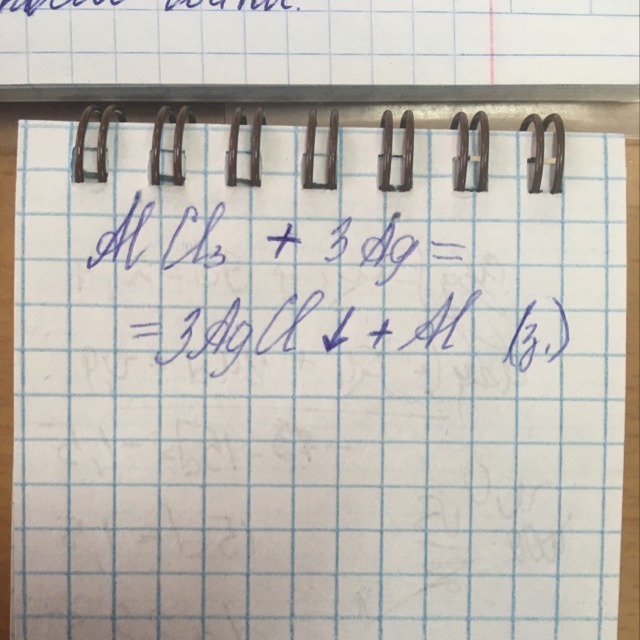 AlCl₃ + 3Ag =
= 3AgCl ↓ + Al (з.)